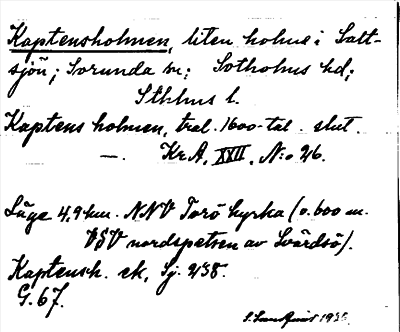 Kaptensholmen, liten holme i Salt-
sjön; Sorunda sn; Sotholms hd;
Sthlms l.
Kaptens holmen, trol. 1600-tal. slut.
—. Kr.A, XXII, N:o 26.
Läge 4,9 km. NNV Torö kyrka (0.600 m.
VSV nordspetsen av Svärdsö).
Kaptensh. ek, Sj. 238.
G. 67.
1935